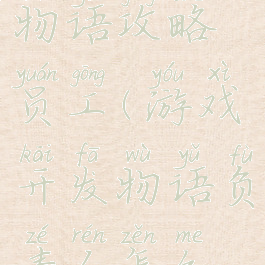 物语攻略
yuán gōng yóu xì
员工(游戏
kāi fā wù yǔ fù
开发物语负
zé rén zěn me
责人怎么